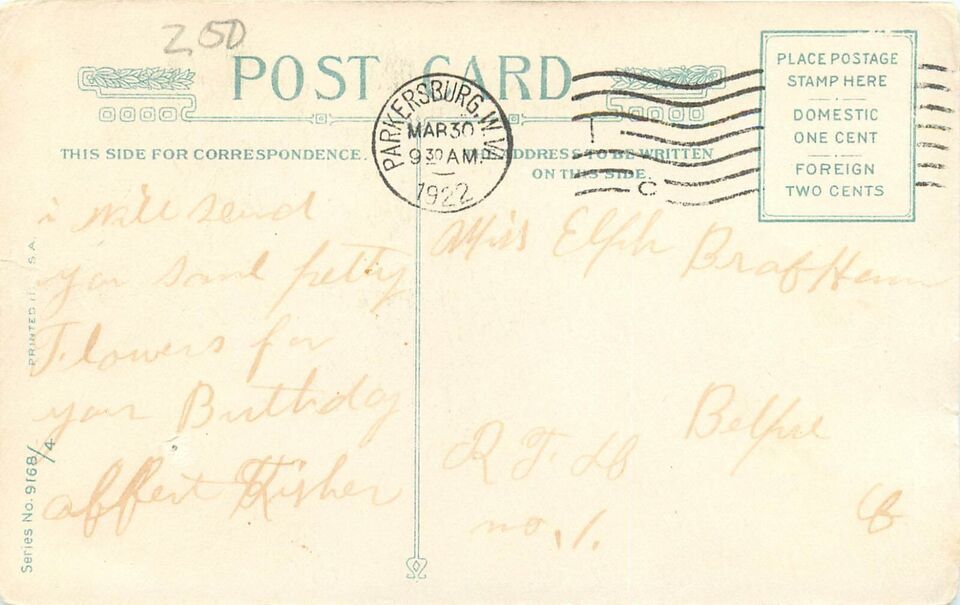 250
POST CARD
THIS SIDE FOR CORRESPONDENCE.
ADDRESS TO BE WRITTEN
ON THIS SIDE.
PARKERSBURG, W.VA.
MAR 30
9 30 AM
1922
PLACE POSTAGE
STAMP HERE
DOMESTIC
ONE CENT
FOREIGN
TWO CENTS
i will send
you
Flowers for
your Birthday
Miss
R F D
no. 1.
PRINTED IN U.S.A.
Series No. 9168/4